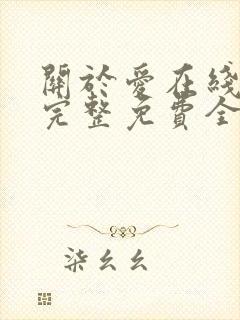 關於愛在綫
完整免費全
柒幺幺